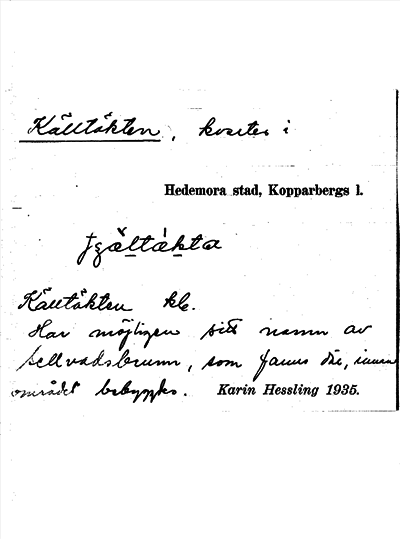 Källtäkten, kvarter i
Hedemora stad, Kopparbergs l.
Källtäkten kv.
Har möjligen sitt namn av
hellvadsbrunn, som fanns där, innan
området bebyggdes. Karin Hessling 1935.